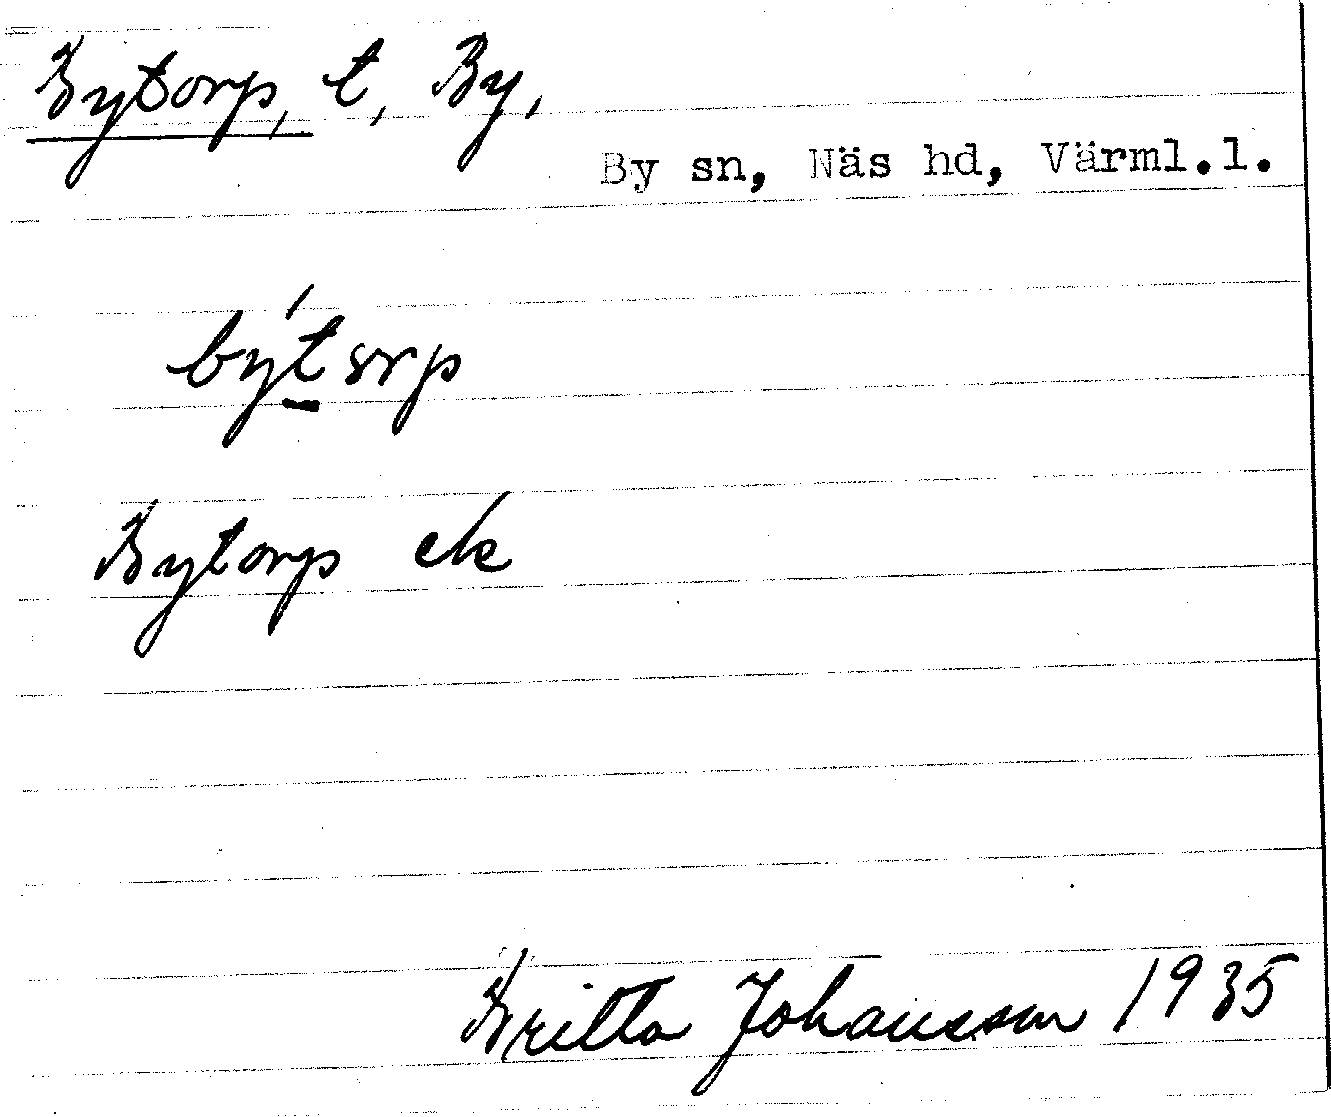 Bytorp, t, By,
By sn, Näs hd, Värml.l.
by´torp
Bytorp ek
Britta Johansson 1935